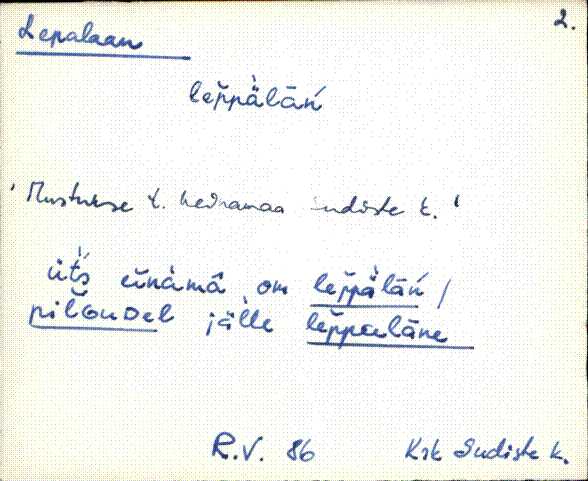 2.
Lepalaan
lep̆pälǟń
'Mustukse t. heinamaa Sudiste k.'
üt́s einämä om lep̆pälǟń /
pilGuDel jälle lep̆paläne
R.V. 86 Krk Sudiste k.